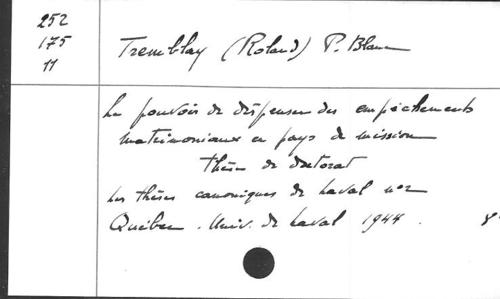 252
175
11
Tremblay (Roland) P. Blanc
Le pouvoir de dispenser des empêchements
matrimoniaux en pays de mission
Thèse de doctorat
Les thèses canoniques de Laval n°2
Québec. Univ. de Laval 1944. 8°